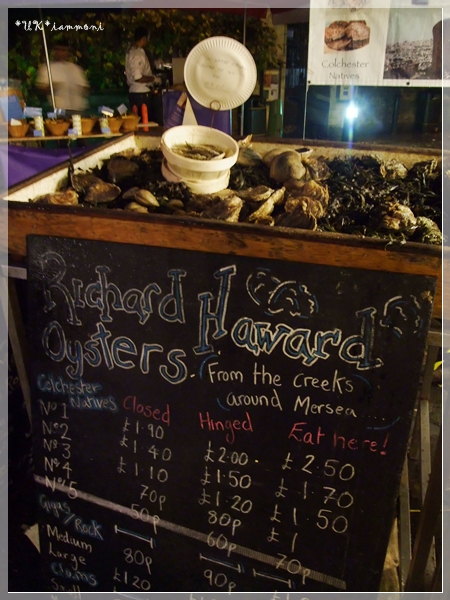 *UK*iammoni
Colchester
Natives
Richard Haward
Oysters.
From the creeks
around Mersea ....
Colchester
Natives Closed Hinged Eat here!
Nº1 £1.90 £2.00. £2.50
Nº2 £1.40 £1.50 £1.70
Nº3 £1.10 £1.20 £1.50
Nº4 70p 80p £1
Nº5 50p 60p 70p
Gigas/Rock
Medium 80p 90p
Large £1.20
Clams